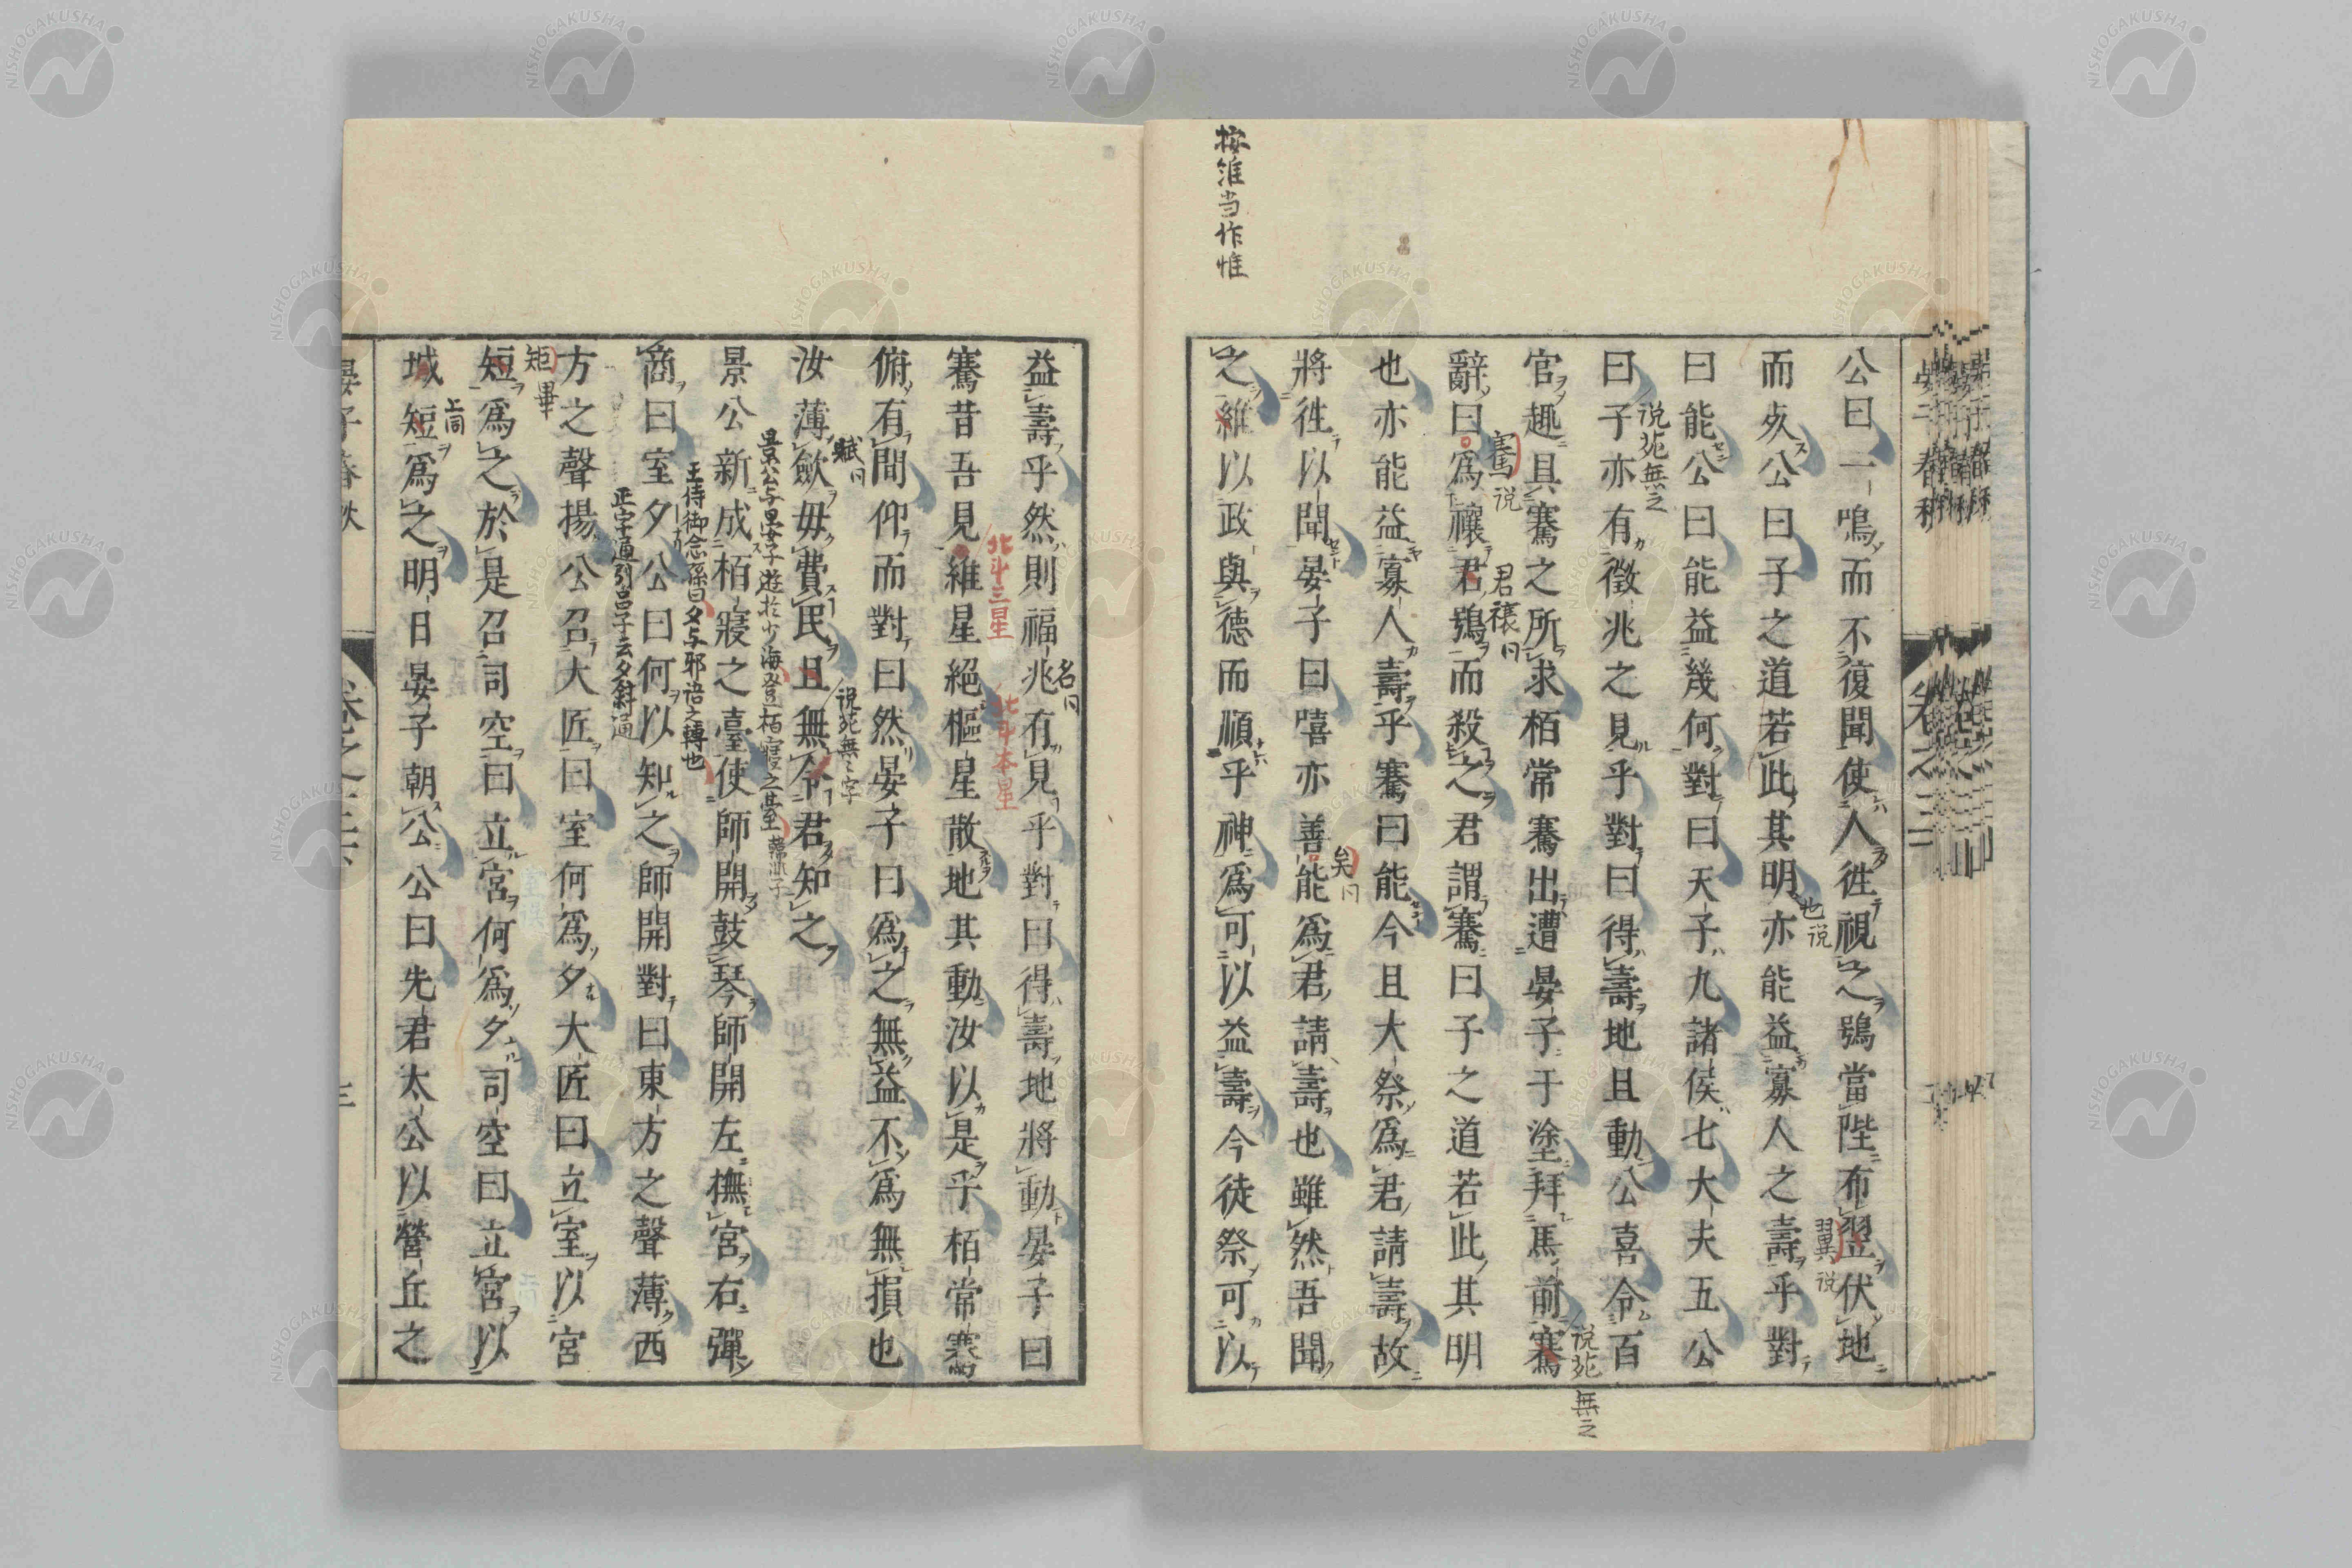 按維当作惟
公曰一鳴而不復聞使人徃視之鴞當陛布翌伏地
而死公曰子之道若此其明亦能益寡人之壽乎對
曰能公曰能益幾何對曰天子九諸侯七大夫五公
曰子亦有徵兆之見乎對曰得壽地且動公喜令百
官趣具騫之所求栢常騫出遭晏子于塗拜馬前騫
辭曰爲禳君鴞而殺之君謂騫曰子之道若此其明
也亦能益寡人壽乎騫曰能今且大祭爲君請壽故
將徃以聞晏子曰嘻亦善能爲君請壽也雖然吾聞
之維以政與德而順乎神爲可以益壽今徒祭可以
也说
翼说
说苑無之
说苑無之
騫说
君禳曰
矣同
益壽乎然則福兆有見乎對曰得壽地將動晏子曰
騫昔吾見維星絕樞星散地其動汝以是乎栢常騫
俯有間仰而對曰然晏子曰爲之無益不爲無損也
汝薄歛毋費民且無令君知之
景公新成栢寢之臺使師開鼓琴師開左撫宮右彈
商曰室夕公曰何以知之師開對曰東方之聲薄西
方之聲揚公召大匠曰室何爲夕大匠曰立室以宮
短爲之於是召司空曰立宮何爲夕司空曰立宮以
城短爲之明日晏子朝公公曰先君太公以營丘之
名同
北斗三星
北斗本星
賦同
说苑無之字
景公与晏子遊於少海登栢寢之臺 韓非子
王侍御念孫曰夕与邪语之轉也
正字通引吕子云夕斜通
矩 畢
上同
晏子春秋
卷之六
NISHOGAKUSHA